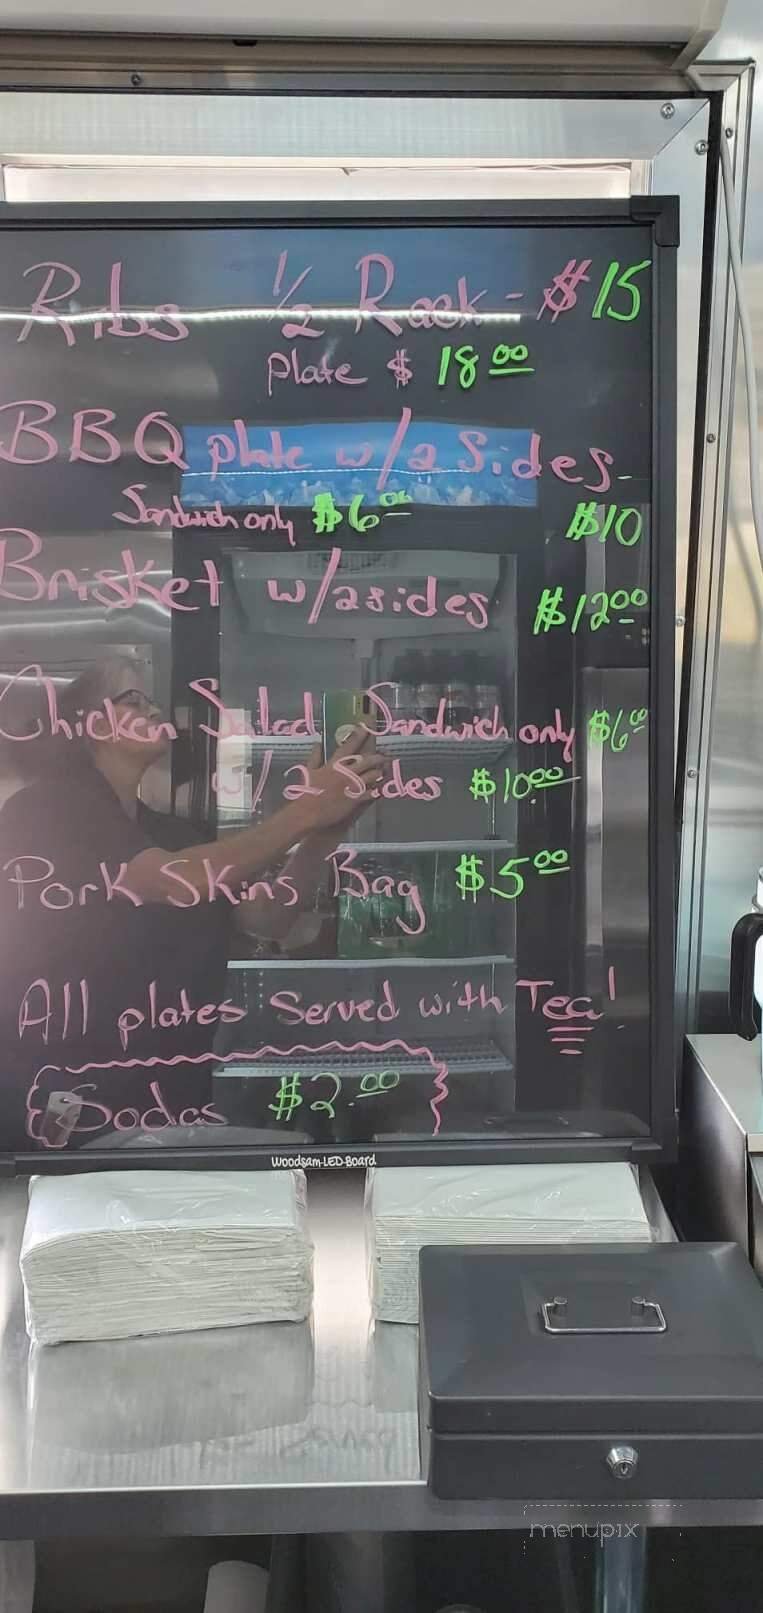 Ribs 1/2 Rack - $15
Plate $ 18.00
BBQ plate w/2 Sides-
Sandwich only $6.00 $10
Brisket w/2sides $12.00
Chicken Salad Sandwich only $6.00
w/2 Sides $10.00
Pork Skins Bag $5.00
All plates Served with Tea!
Sodas $2.00
Woodsam-LED-Board
menupix